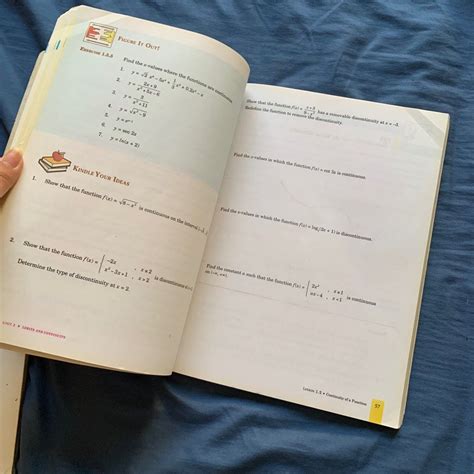 FIGURE IT OUT!
EXERCISE 1.2.3
Find the x-values where the functions are continuous.
1.
2. y = (2x + 9)/(x² + 5x − 6)
3. y = 3/(x² + 11)
4. y = √(x² − 9)
5.
6. y = sec 2x
7. y = ln(x + 2)
KINDLE YOUR IDEAS
1. Show that the function f(x) = √(9 − x²) is continuous on the interval
2. Show that the function f(x) = { −2x , x ≤ 2
x² − 3x + 1 , x > 2 is discontinuous at
Determine the type of discontinuity at x = 2.
UNIT 1 • LIMITS AND CONTINUITY
Show that the function f(x) = has a removable discontinuity at x = −3.
Redefine the function to remove the discontinuity.
Find the x-values in which the function f(x) = csc 5x is continuous.
Find the x-values in which the function f(x) = log (2x + 1) is discontinuous.
Find the constant a such that the function f(x) = { 2x² , x ≥ 1
ax − 4 , x < 1 is continuous
on (−∞, ∞).
Lesson 1.2 • Continuity of a Function
57